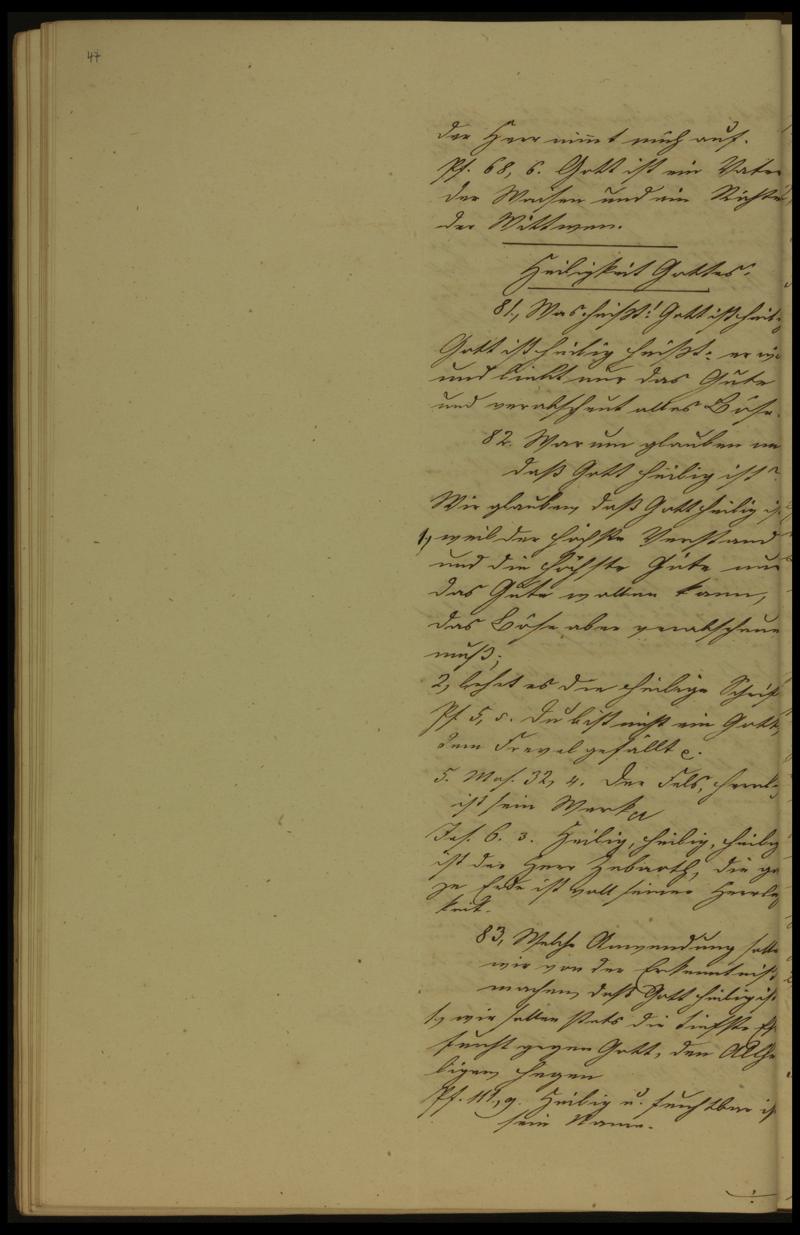 47
der Herr nim̅t mich auf.
Pf. 68, 6. Gott ist ein Vater
der Waisen und ein Richte
der Wittwen.
Heiligkeit Gottes.
81., Was heißt: Gott ist heil
Gott ist heilig heißt: er
und liebt nur das Gute
und verabscheut alles Böse.
82. Warum glauben
daß Gott heilig ist?
Wir glauben, daß Gott heilig is
1, weil der höchste Verstand
und die höchste Güte nur
das Gute wollen kann,
das Böse aber verabscheue
muß;
2, lehrt es die heilige Schrif
Ps. 5, 5. Du bist nicht ein Gott,
dem Frevel gefällt
5. Mos. 32, 4. Der Fels,
ist sein Werk
Jes. 6. 3. Heilig, heilig, heilig
ist der Herr Zebaoth, die ga
ze Erde ist voll seiner Herrli
keit.
83, Welche Anwendung solle
wir von der Erkenntniß
machen, daß Gott heilig is
1, wir sollen stets die tiefste Eh
furcht gegen Gott, den Allhe
ligen, hegen
Ps. 111, 9. Heilig u. furchtbar is
sein Name.